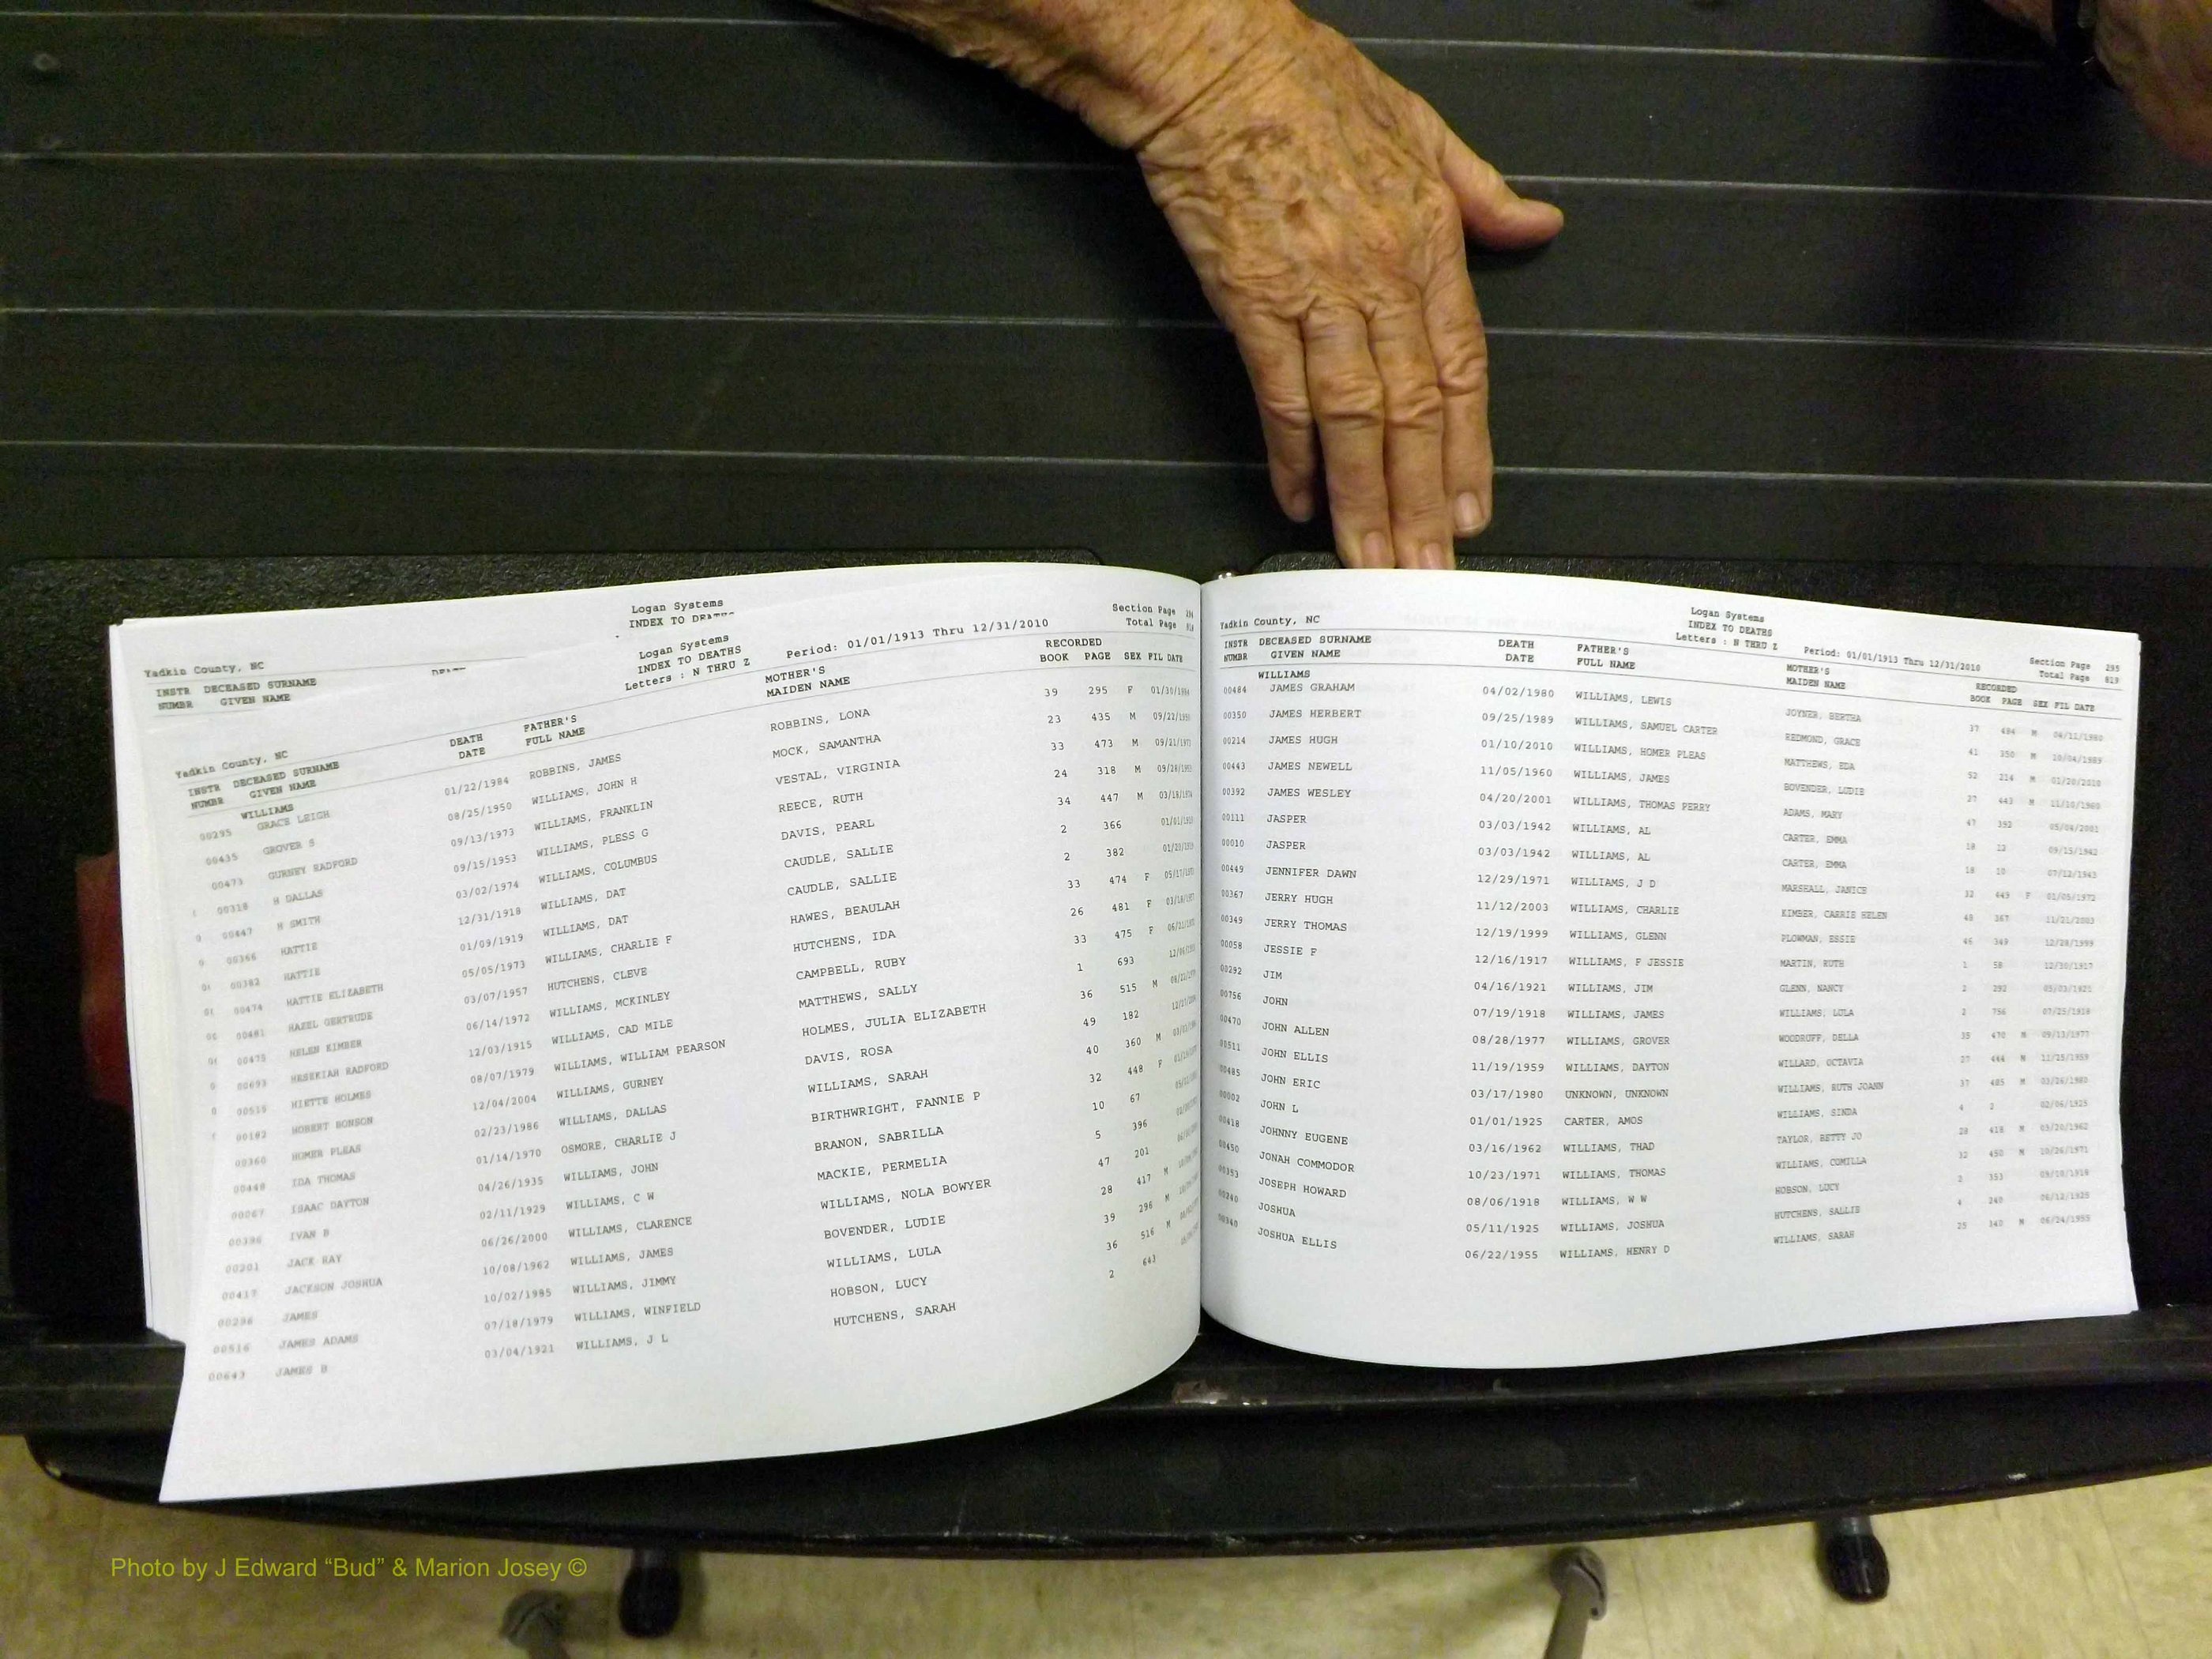 Logan Systems
INDEX TO DEATHS
Yadkin County, NC
INSTR DECEASED SURNAME
NUMBR GIVEN NAME
Logan Systems
INDEX TO DEATHS
Letters : N THRU Z
Period: 01/01/1913 Thru 12/31/2010
Section Page
Total Page
Yadkin County, NC
INSTR DECEASED SURNAME DEATH FATHER'S MOTHER'S RECORDED
NUMBR GIVEN NAME DATE FULL NAME MAIDEN NAME BOOK PAGE SEX FIL DATE
WILLIAMS
00295 GRACE LEIGH 01/22/1984 ROBBINS, JAMES ROBBINS, LONA 39 295 F 01/30/1984
00435 GROVER S 08/25/1950 WILLIAMS, JOHN H MOCK, SAMANTHA 23 435 M 09/22/1950
00473 GURNEY RADFORD 09/13/1973 WILLIAMS, FRANKLIN VESTAL, VIRGINIA 33 473 M 09/21/1973
00318 H DALLAS 09/15/1953 WILLIAMS, PLESS G REECE, RUTH 24 318 M
00447 H SMITH 03/02/1974 WILLIAMS, COLUMBUS DAVIS, PEARL 34 447 M 03/18/1974
00366 HATTIE 12/31/1918 WILLIAMS, DAT CAUDLE, SALLIE 2 366
00382 HATTIE 01/09/1919 WILLIAMS, DAT CAUDLE, SALLIE 2 382
00474 HATTIE ELIZABETH 05/05/1973 WILLIAMS, CHARLIE F HAWES, BEAULAH 33 474 F
00481 HAZEL GERTRUDE 03/07/1957 HUTCHENS, CLEVE HUTCHENS, IDA 26 481 F
00475 HELEN KIMBER 06/14/1972 WILLIAMS, MCKINLEY CAMPBELL, RUBY 33 475 F
00693 HESEKIAH RADFORD 12/03/1915 WILLIAMS, CAD MILE MATTHEWS, SALLY 1 693
00515 HIETTE HOLMES 08/07/1979 WILLIAMS, WILLIAM PEARSON HOLMES, JULIA ELIZABETH 36 515 M
00182 HOBERT BONSON 12/04/2004 WILLIAMS, GURNEY DAVIS, ROSA 49 182
00360 HOMER PLEAS 02/23/1986 WILLIAMS, DALLAS WILLIAMS, SARAH 40 360 M
00448 IDA THOMAS 01/14/1970 OSMORE, CHARLIE J BIRTHWRIGHT, FANNIE P 32 448 F
00067 ISAAC DAYTON 04/26/1935 WILLIAMS, JOHN BRANON, SABRILLA 10 67
00396 IVAN B 02/11/1929 WILLIAMS, C W MACKIE, PERMELIA 5 396
00201 JACK RAY 06/26/2000 WILLIAMS, CLARENCE WILLIAMS, NOLA BOWYER 47 201
00417 JACKSON JOSHUA 10/08/1962 WILLIAMS, JAMES BOVENDER, LUDIE 28 417 M
00298 JAMES 10/02/1985 WILLIAMS, JIMMY WILLIAMS, LULA 39 298 M
00516 JAMES ADAMS 07/18/1979 WILLIAMS, WINFIELD HOBSON, LUCY 36 516 M
00643 JAMES B 03/04/1921 WILLIAMS, J L HUTCHENS, SARAH 2 643
Yadkin County, NC
Logan Systems
INDEX TO DEATHS
Letters : N THRU Z
Period: 01/01/1913 Thru 12/31/2010
Section Page 295
Total Page 819
INSTR DECEASED SURNAME DEATH FATHER'S MOTHER'S RECORDED
NUMBR GIVEN NAME DATE FULL NAME MAIDEN NAME BOOK PAGE SEX FIL DATE
WILLIAMS
00484 JAMES GRAHAM 04/02/1980 WILLIAMS, LEWIS JOYNER, BERTHA 37 484 M 04/11/1980
00350 JAMES HERBERT 09/25/1989 WILLIAMS, SAMUEL CARTER REDMOND, GRACE 41 350 M 10/04/1989
00214 JAMES HUGH 01/10/2010 WILLIAMS, HOMER PLEAS MATTHEWS, EDA 52 214 M 01/20/2010
00443 JAMES NEWELL 11/05/1960 WILLIAMS, JAMES BOVENDER, LUDIE 27 443 M 11/10/1960
00392 JAMES WESLEY 04/20/2001 WILLIAMS, THOMAS PERRY ADAMS, MARY 47 392 05/04/2001
00111 JASPER 03/03/1942 WILLIAMS, AL CARTER, EMMA 18 09/15/1942
00010 JASPER 03/03/1942 WILLIAMS, AL CARTER, EMMA 18 10 07/12/1943
00449 JENNIFER DAWN 12/29/1971 WILLIAMS, J D MARSHALL, JANICE 32 449 F 01/05/1972
00367 JERRY HUGH 11/12/2003 WILLIAMS, CHARLIE KIMBER, CARRIE HELEN 48 367 11/21/2003
00349 JERRY THOMAS 12/19/1999 WILLIAMS, GLENN PLOWMAN, ESSIE 46 349 12/28/1999
00058 JESSIE F 12/16/1917 WILLIAMS, F JESSIE MARTIN, RUTH 1 58 12/30/1917
00292 JIM 04/16/1921 WILLIAMS, JIM GLENN, NANCY 2 292 05/03/1921
00756 JOHN 07/19/1918 WILLIAMS, JAMES WILLIAMS, LULA 2 756 07/25/1918
00470 JOHN ALLEN 08/28/1977 WILLIAMS, GROVER WOODRUFF, DELLA 35 470 M 09/13/1977
00511 JOHN ELLIS 11/19/1959 WILLIAMS, DAYTON WILLARD, OCTAVIA 27 M 11/25/1959
00485 JOHN ERIC 03/17/1980 UNKNOWN, UNKNOWN WILLIAMS, RUTH JOANN 37 485 M 03/26/1980
00002 JOHN L 01/01/1925 CARTER, AMOS WILLIAMS, SINDA 4 2 02/06/1925
00418 JOHNNY EUGENE 03/16/1962 WILLIAMS, THAD TAYLOR, BETTY JO 28 418 M 03/20/1962
00450 JONAH COMMODOR 10/23/1971 WILLIAMS, THOMAS WILLIAMS, COMILLA 32 450 M 10/26/1971
00353 JOSEPH HOWARD 08/06/1918 WILLIAMS, W W HOBSON, LUCY 2 353 09/10/1918
00240 JOSHUA 05/11/1925 WILLIAMS, JOSHUA HUTCHENS, SALLIE 4 240 06/12/1925
00340 JOSHUA ELLIS 06/22/1955 WILLIAMS, HENRY D WILLIAMS, SARAH 25 340 M 06/24/1955
Photo by J Edward “Bud” & Marion Josey ©